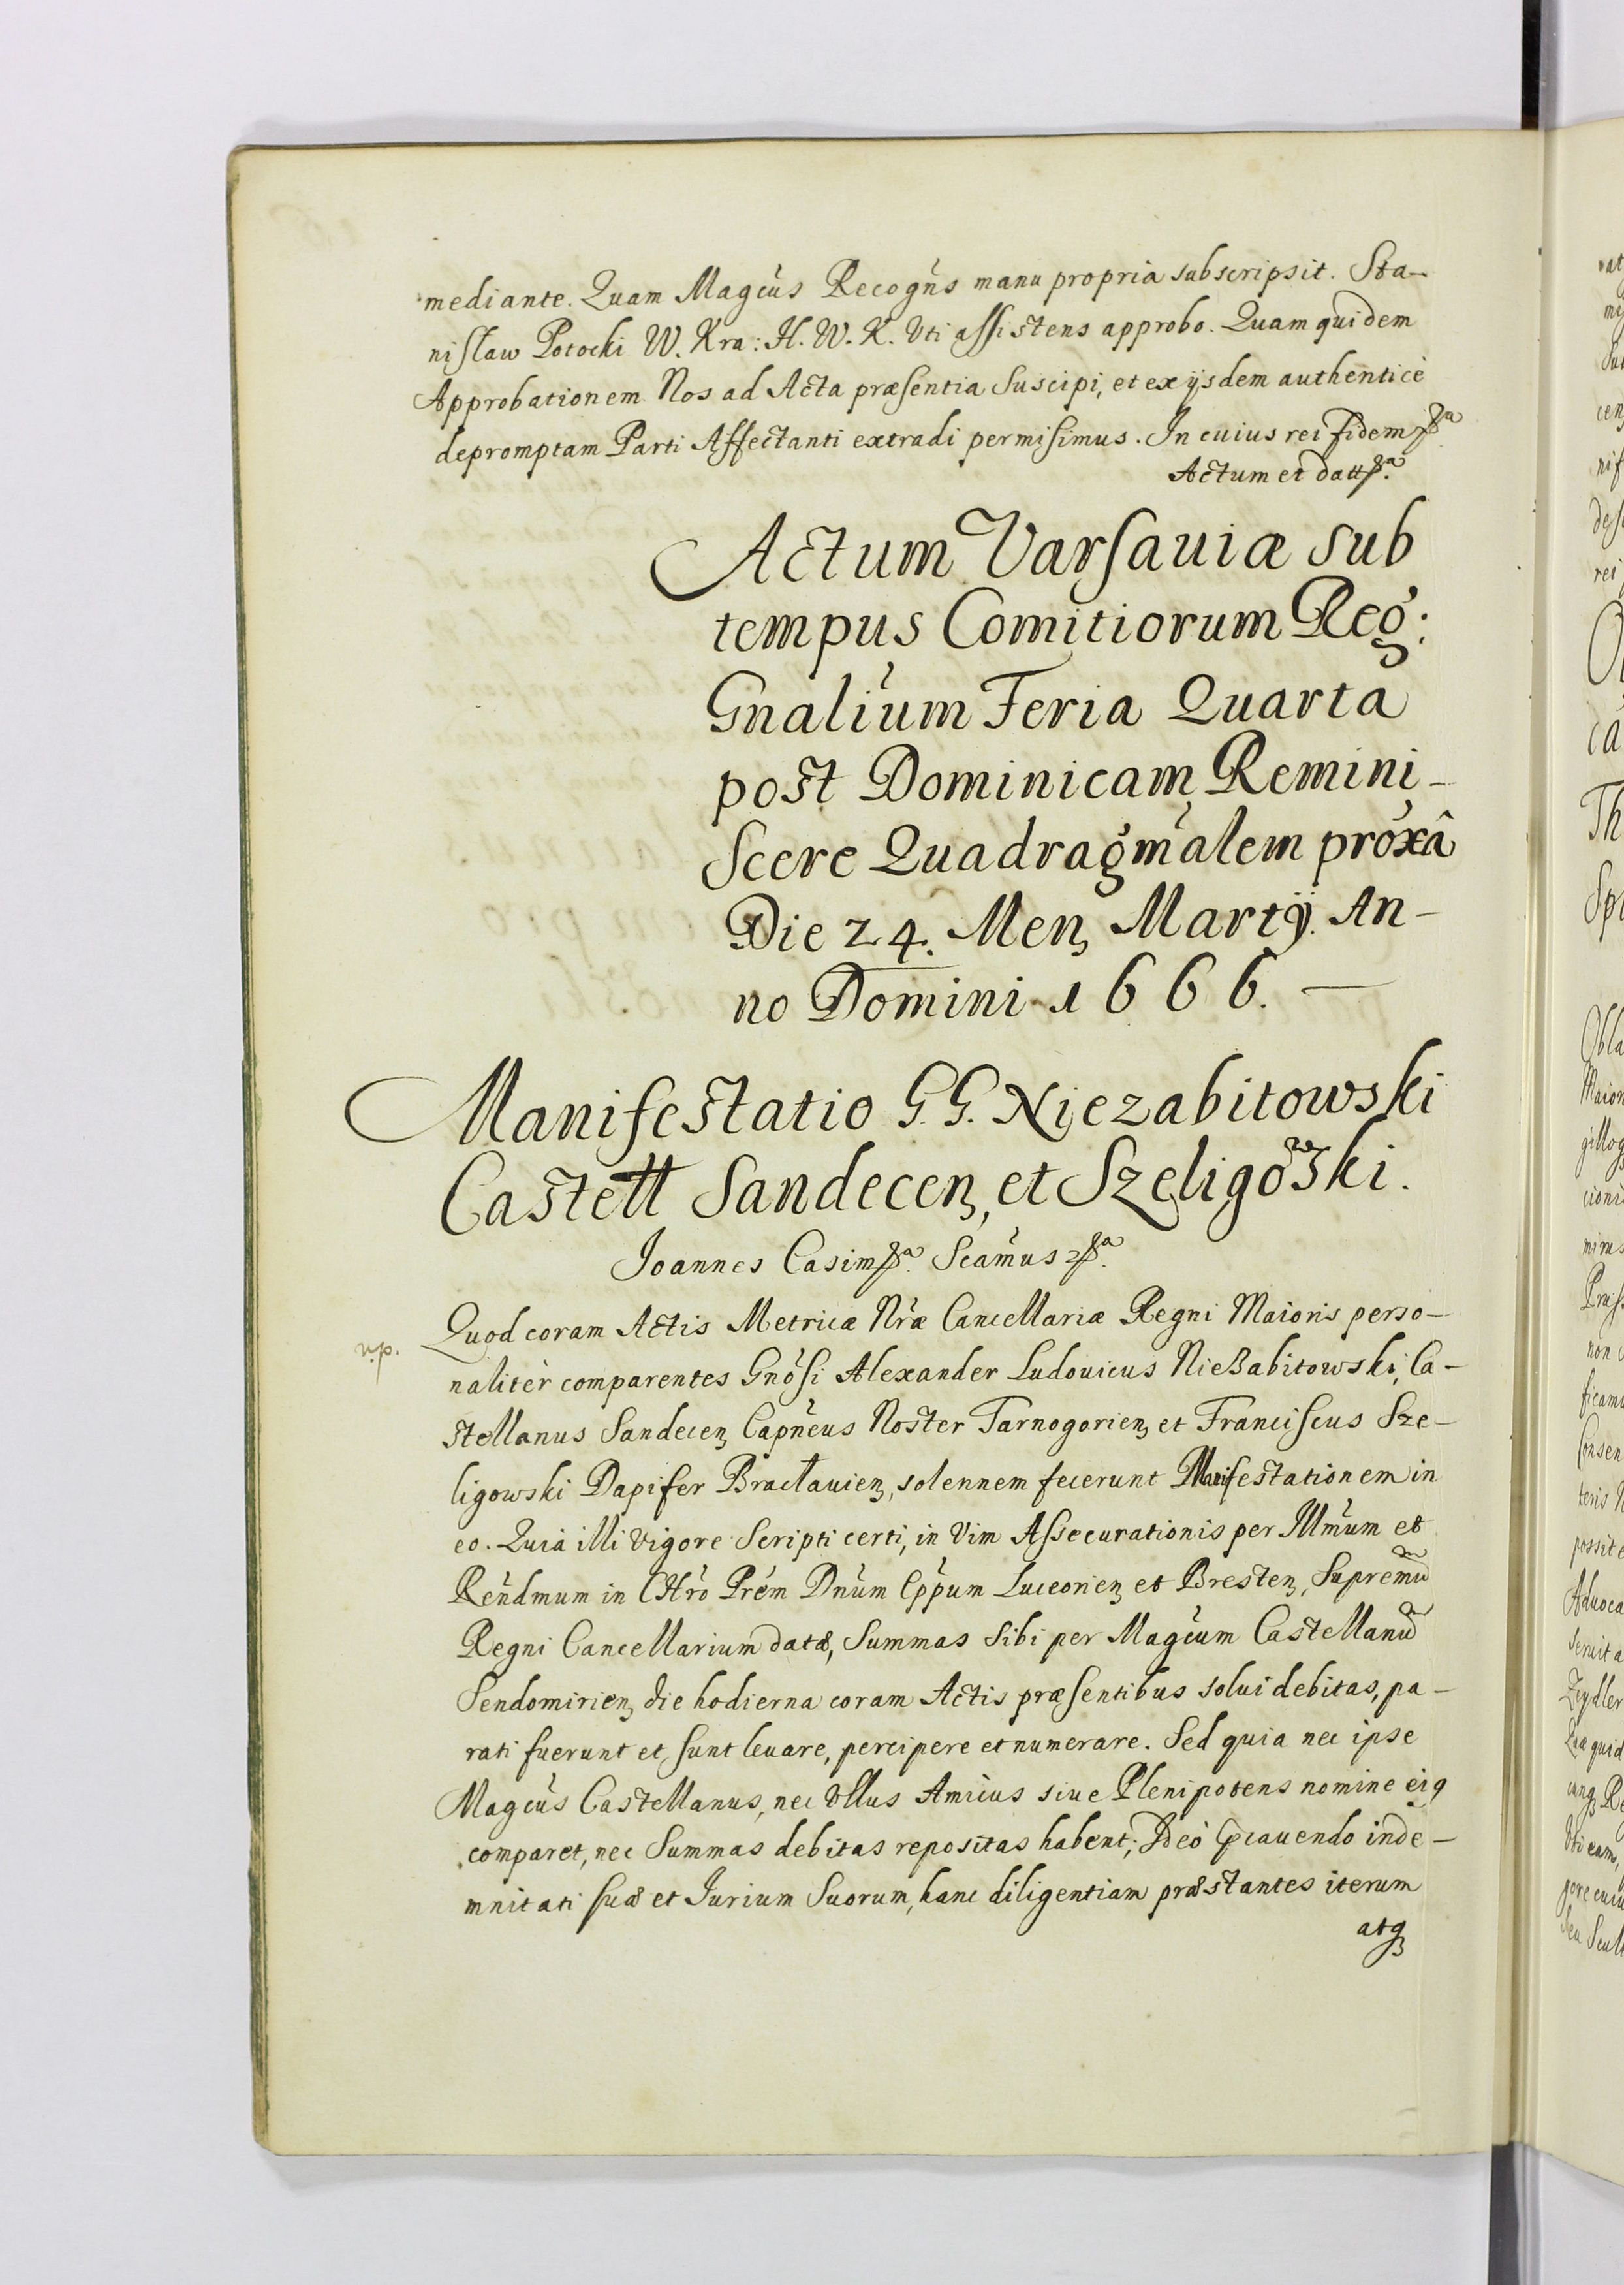 mediante. Quam Magcus Recogns manu propria subscripsit. Sta-
nisław Potocki W. Kra: H. W. K. Vti assistens approbo. Quam quidem
Approbationem Nos ad Acta præsentia Suscipi, et ex ijsdem authenticè
depromptam Parti Affectanti extradi permisimus. In cuius rei fidem
Actum et datt
Actum Varsauiæ sub
tempus Comitiorum Reg:
Gnalium Feria Quarta
post Dominicam Remini-
Scere Quadragmalem proxâ
Die 24. Men Martÿ. An-
no Domini 1666. —
Manifestatio G. G. Niezabitowski
Castell Sandecen, et Szeligowski.
Ioannes Casim Scamus
Quod coram Actis Metricæ Nræ Cancellariæ Regni Maioris perso-
v.p.
naliter comparentes Gnosi Alexander Ludouicus Nießabitowski, Ca-
stellanus Sandecen Capneus Noster Tarnogorien et Franciscus Sze-
ligowski Dapifer Bracłauien, solennem fecerunt Manifestationem in
eo. Quia illi vigore Scripti certi, in vim Assecurationis per Illmum et
Rendmum in Chro Prem Dnum Eppum Luceorien et Bresten, Supremu
Regni Cancellarium datæ, Summas Sibi per Magcum Castellanu
Sendomirien die hodierna coram Actis præsentibus solui debitas, pa-
rati fuerunt et sunt leuare, percipere et numerare. Sed quia nec ipse
Magcus Castellanus, nec Vllus Amicus siue Plenipotens nomine eiq
comparet, nec Summas debitas repositas habent; Ideo præcauendo inde-
mnitati suæ et Iurium Suorum, hanc diligentiam præstantes iterum
atq